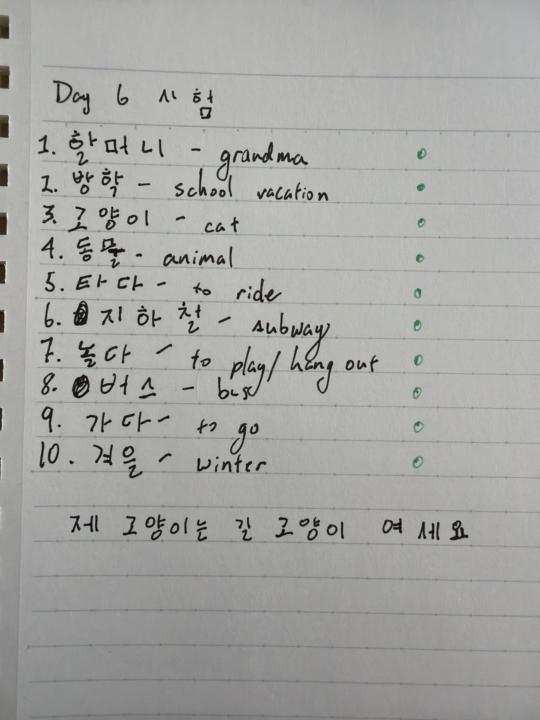 Day 6 시험
1. 할머니 - grandma
2. 방학 - school vacation
3. 고양이 - cat
4. 동물 - animal
5. 타다 - to ride
6. 지하철 - subway
7. 놀다 - to play/hang out
8. 버스 - bus
9. 가다 - to go
10. 겨울 - winter
제 고양이는 길 고양이 여세요